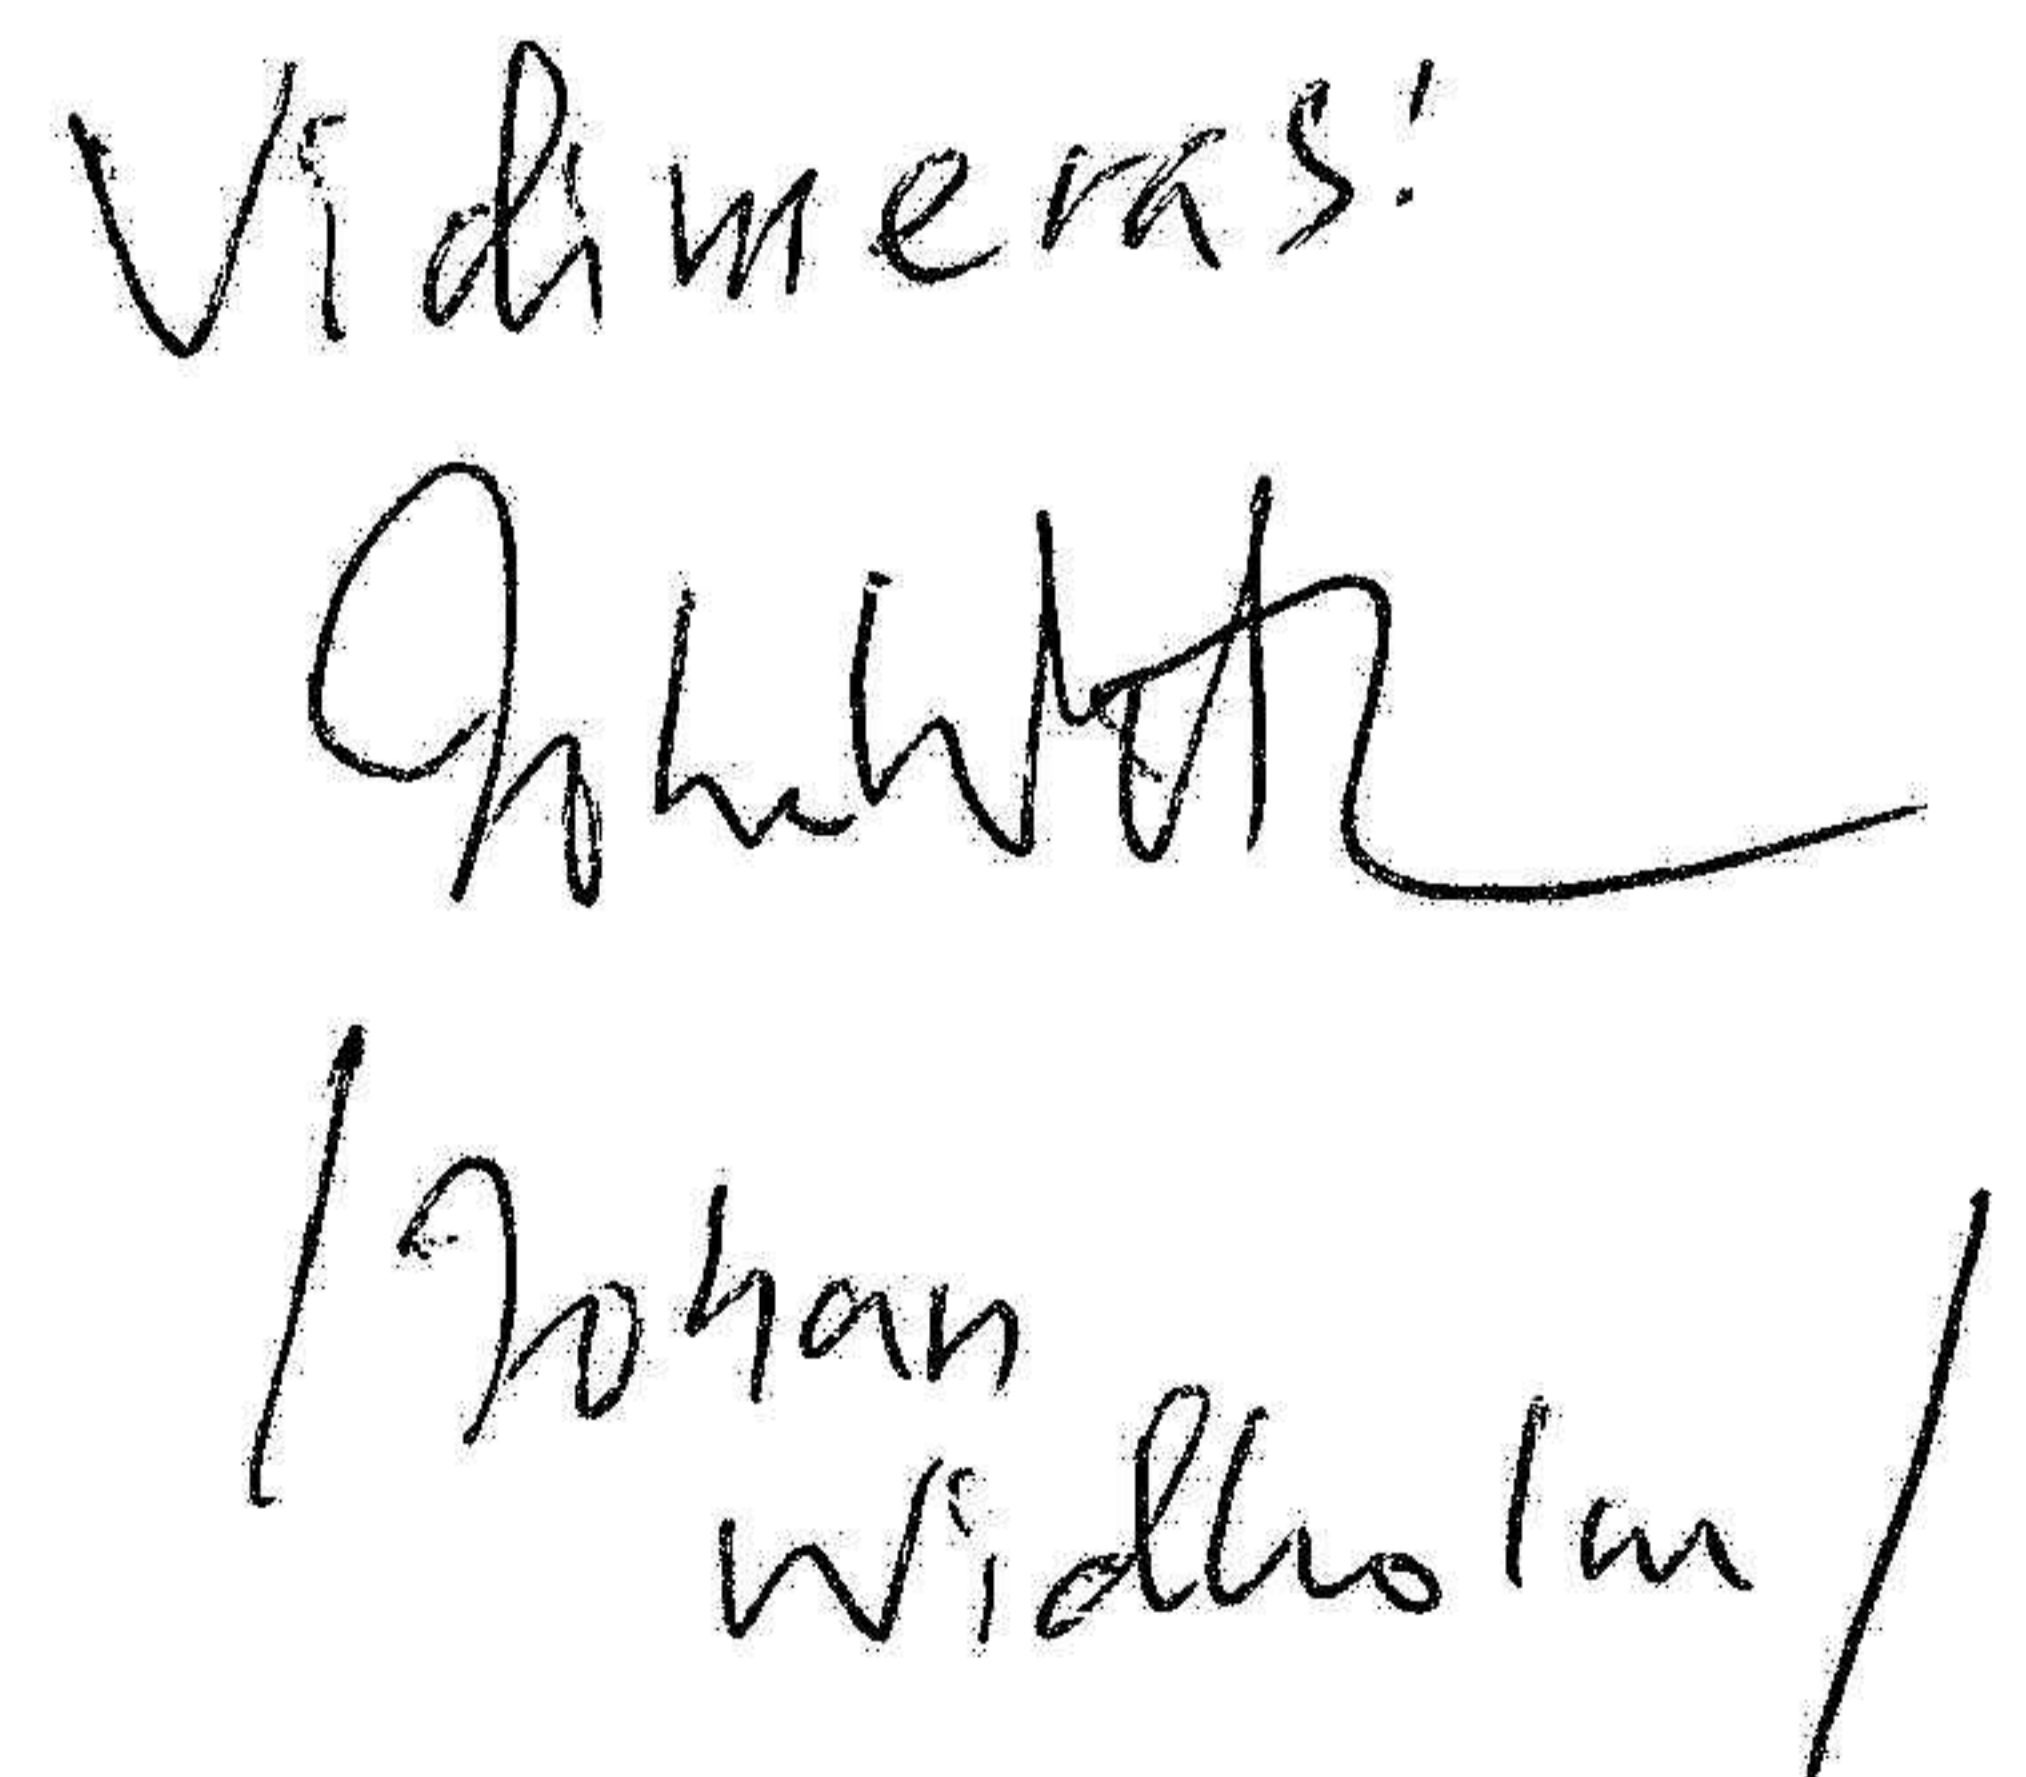 Vidimeras!
/Johan
Widholm/